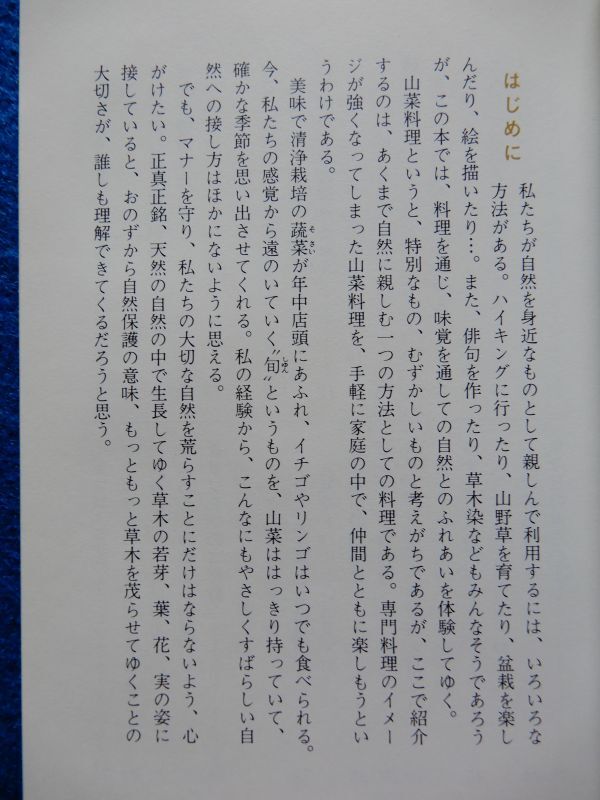 はじめに
私たちが自然を身近なものとして親しんで利用するには、いろいろな
方法がある。ハイキングに行ったり、山野草を育てたり、盆栽を楽し
んだり、絵を描いたり…。また、俳句を作ったり、草木染などもみんなそうであろう
が、この本では、料理を通じ、味覚を通しての自然とのふれあいを体験してゆく。
山菜料理というと、特別なもの、むずかしいものと考えがちであるが、ここで紹介
するのは、あくまで自然に親しむ一つの方法としての料理である。専門料理のイメー
ジが強くなってしまった山菜料理を、手軽に家庭の中で、仲間とともに楽しもうとい
うわけである。
美味で清浄栽培の蔬菜が年中店頭にあふれ、イチゴやリンゴはいつでも食べられる。
今、私たちの感覚から遠のいていく〝旬〟というものを、山菜ははっきり持っていて、
確かな季節を思い出させてくれる。私の経験から、こんなにもやさしくすばらしい自
然への接し方はほかにないように思える。
でも、マナーを守り、私たちの大切な自然を荒らすことにだけはならないよう、心
がけたい。正真正銘、天然の自然の中で生長してゆく草木の若芽、葉、花、実の姿に
接していると、おのずから自然保護の意味、もっともっと草木を茂らせてゆくことの
大切さが、誰しも理解できてくるだろうと思う。